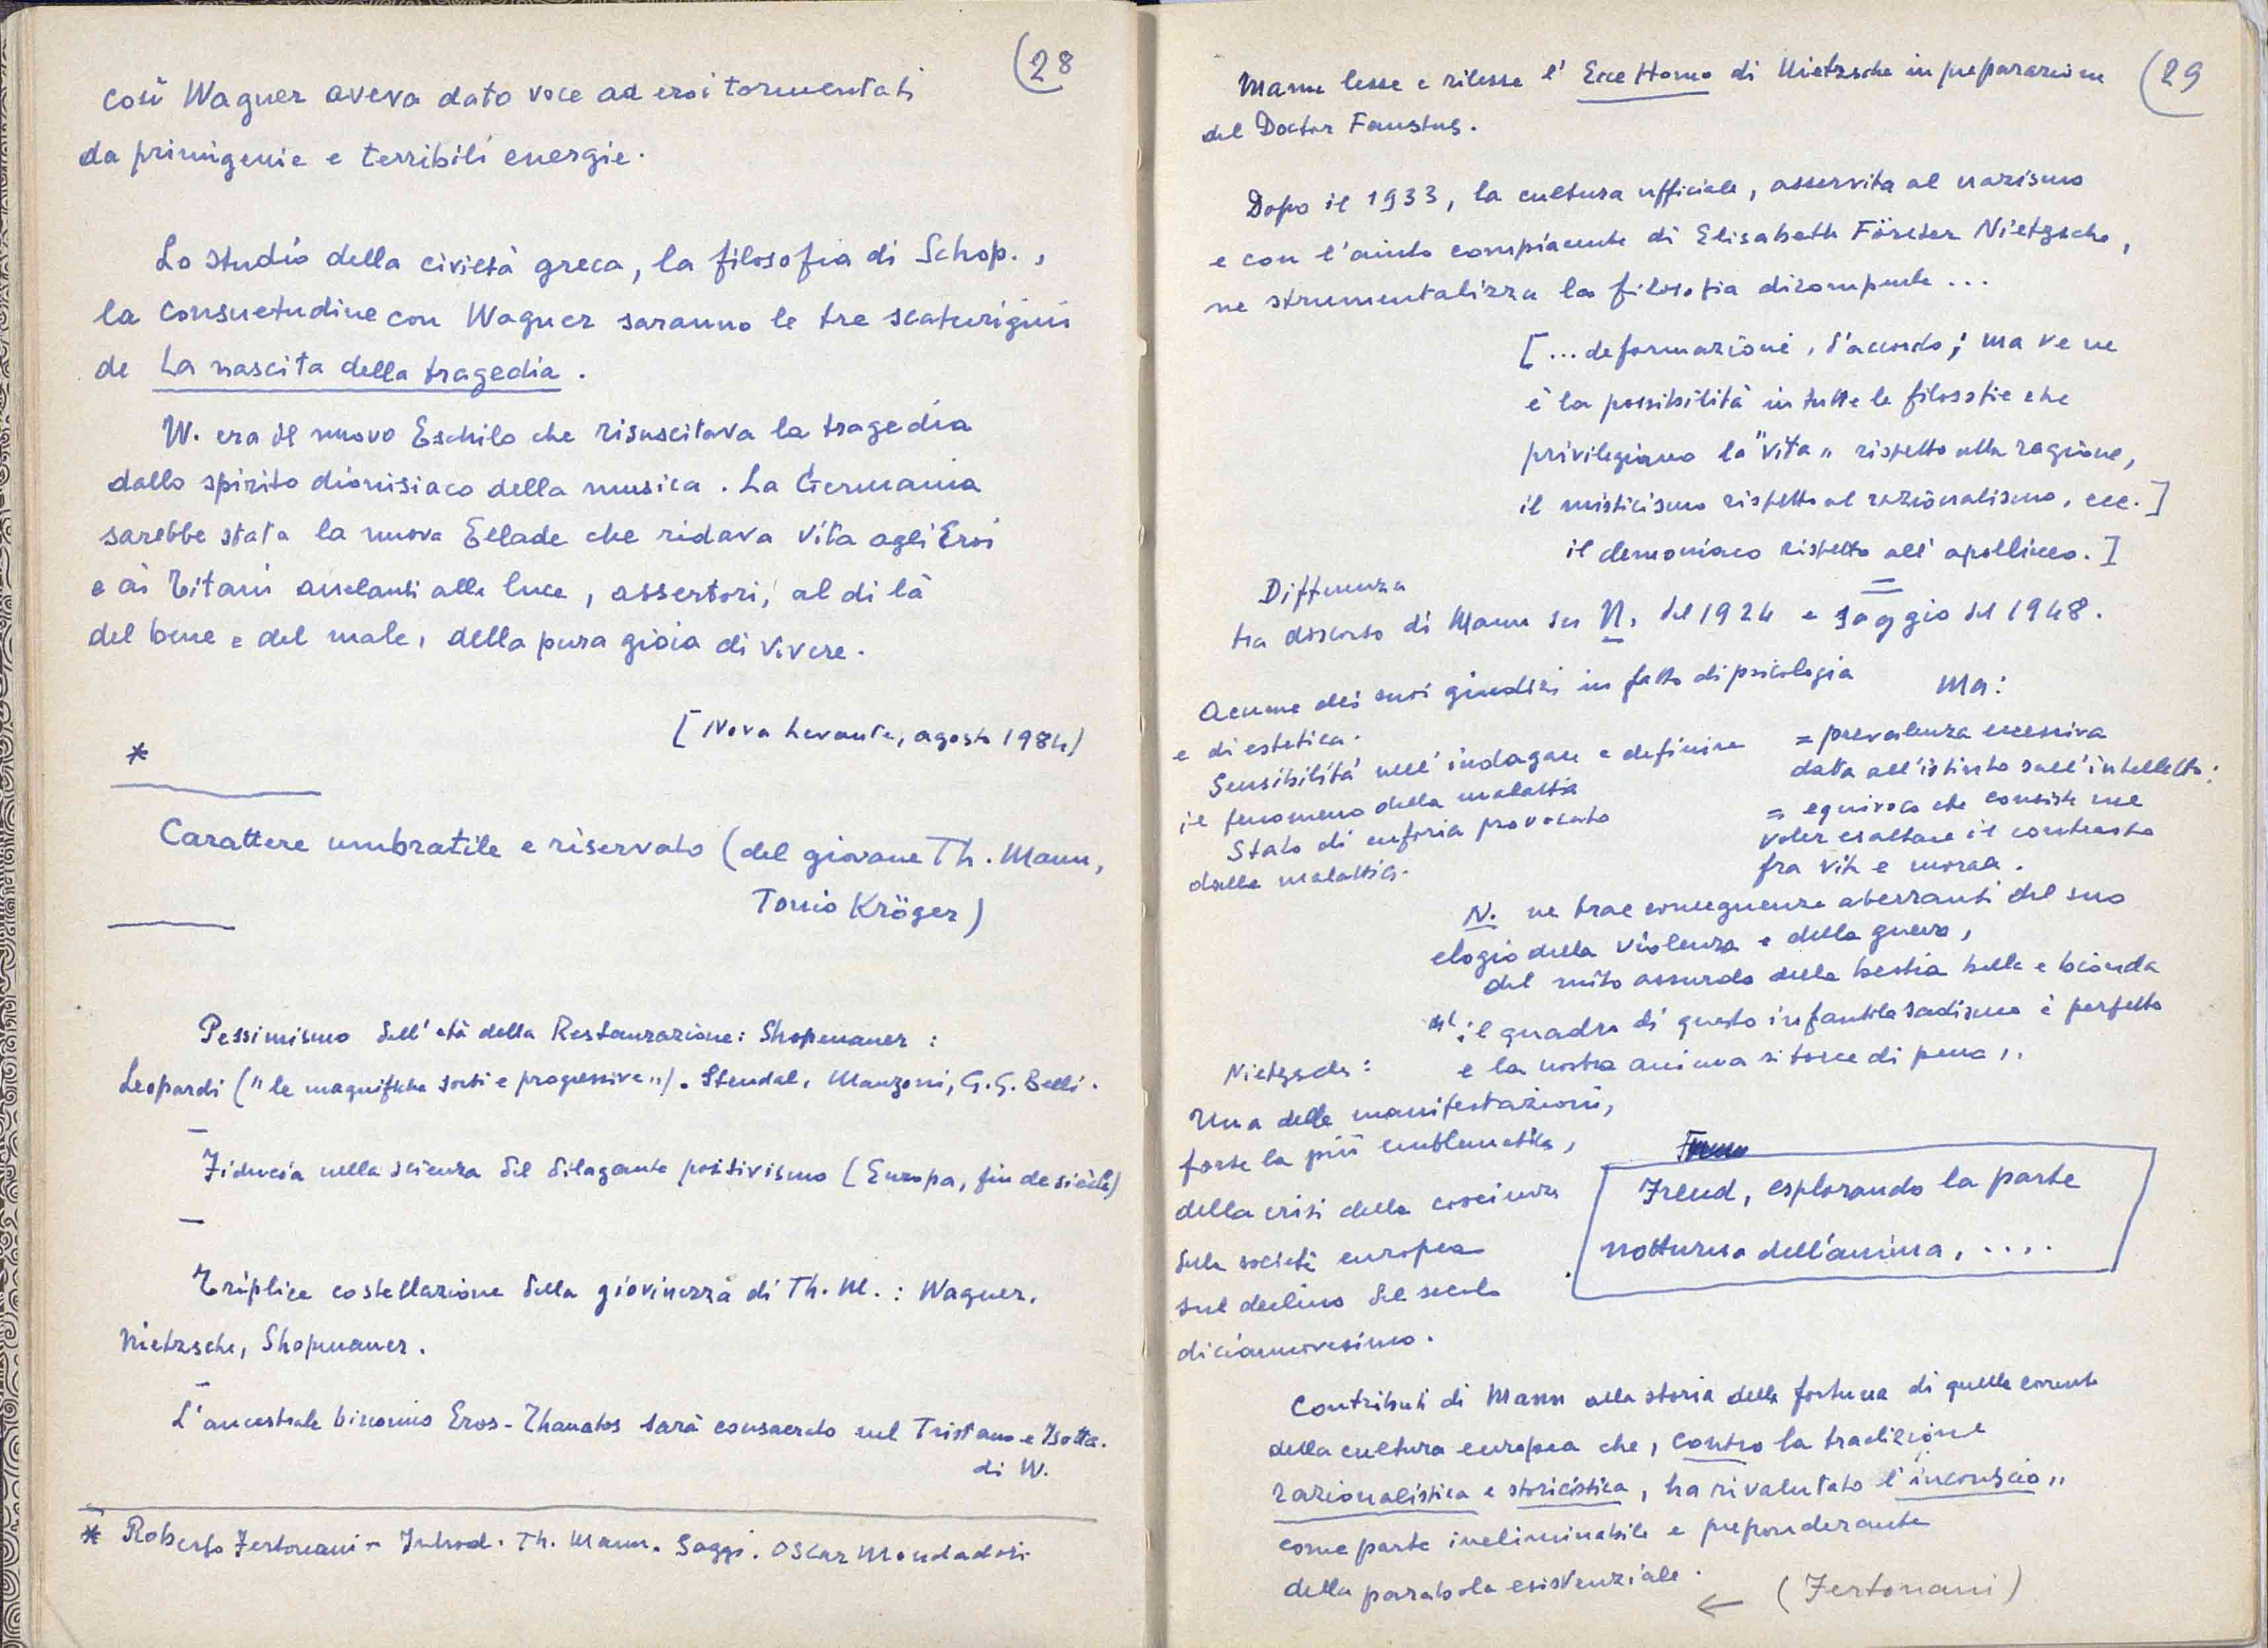 (28
così Wagner aveva dato voce ad eroi tormentati
da primigenie e terribili energie.
Lo studio della civiltà greca, la filosofia di Schop.,
la consuetudine con Wagner saranno le tre scaturigini
de La nascita della tragedia.
W. era il nuovo Eschilo che risuscitava la tragedia
dallo spirito dionisiaco della musica. La Germania
sarebbe stata la nuova Ellade che ridava vita agli Eroi
e ai Titani anelanti alla luce, assertori, al di là
del bene e del male, della pura gioia di vivere.
[Nova Levante, agosto 1984]
*
Carattere umbratile e riservato (del giovane Th. Mann,
Tonio Kröger)
Pessimismo dell'età della Restaurazione: Shopenauer:
Leopardi ("le magnifiche sorti e progressive"). Stendal, Manzoni, G.G. Belli.
–
Fiducia nella scienza del dilagante positivismo [Europa, fin de siècle)
–
Triplice costellazione della giovinezza di Th. M.: Wagner,
Nietzsche, Shopenauer.
–
L'ancestrale binomio Eros-Thanatos sarà consacrato nel Tristano e Isotta.
di W.
* Roberto Fertonani - Introd. Th. Mann. Saggi. Oscar Mondadori
(29
Mann lesse e rilesse l'Ecce Homo di Nietzsche in preparazione
del Doctor Faustus.
Dopo il 1933, la cultura ufficiale, asservita al nazismo
e con l'aiuto compiacente di Elisabeth Förster Nietzsche,
ne strumentalizza la filosofia dirompente...
[...deformazione, d'accordo; ma ve ne
è la possibilità in tutte le filosofie che
privilegiano la "vita" rispetto alla ragione,
il misticismo rispetto al razionalismo, ecc.]
il demoniaco rispetto all'apollineo.]
=
Differenza
tra discorso di Mann su N. del 1924 e saggio del 1948.
Acume dei suoi giudizi in fatto di psicologia
e di estetica.
Sensibilità nell'indagare e definire
il fenomeno della malattia
Stato di euforia provocato
dalla malattia.
Ma:
= prevalenza eccessiva
data all'istinto sull'intelletto;
= equivoco che consiste nel
voler esaltare il contrasto
fra vita e morale.
N. ne trae conseguenze aberranti del suo
elogio della violenza e della guerra,
del mito assurdo della bestia bella e bionda
"il quadro di questo infantile sadismo è perfetto
e la nostra anima si torce di pena".
Nietzsche:
Una delle manifestazioni,
forse la più emblematica,
della crisi della coscienza
della società europea
sul declino del secolo
diciannovesimo.
Freud, esplorando la parte
notturna dell'anima, ....
Contributi di Mann alla storia della fortuna di quelle correnti
della cultura europea che, contro la tradizione
razionalistica e storicistica, ha rivalutato l'inconscio"
come parte ineliminabile e preponderante
della parabola esistenziale.
← (Fertonani)